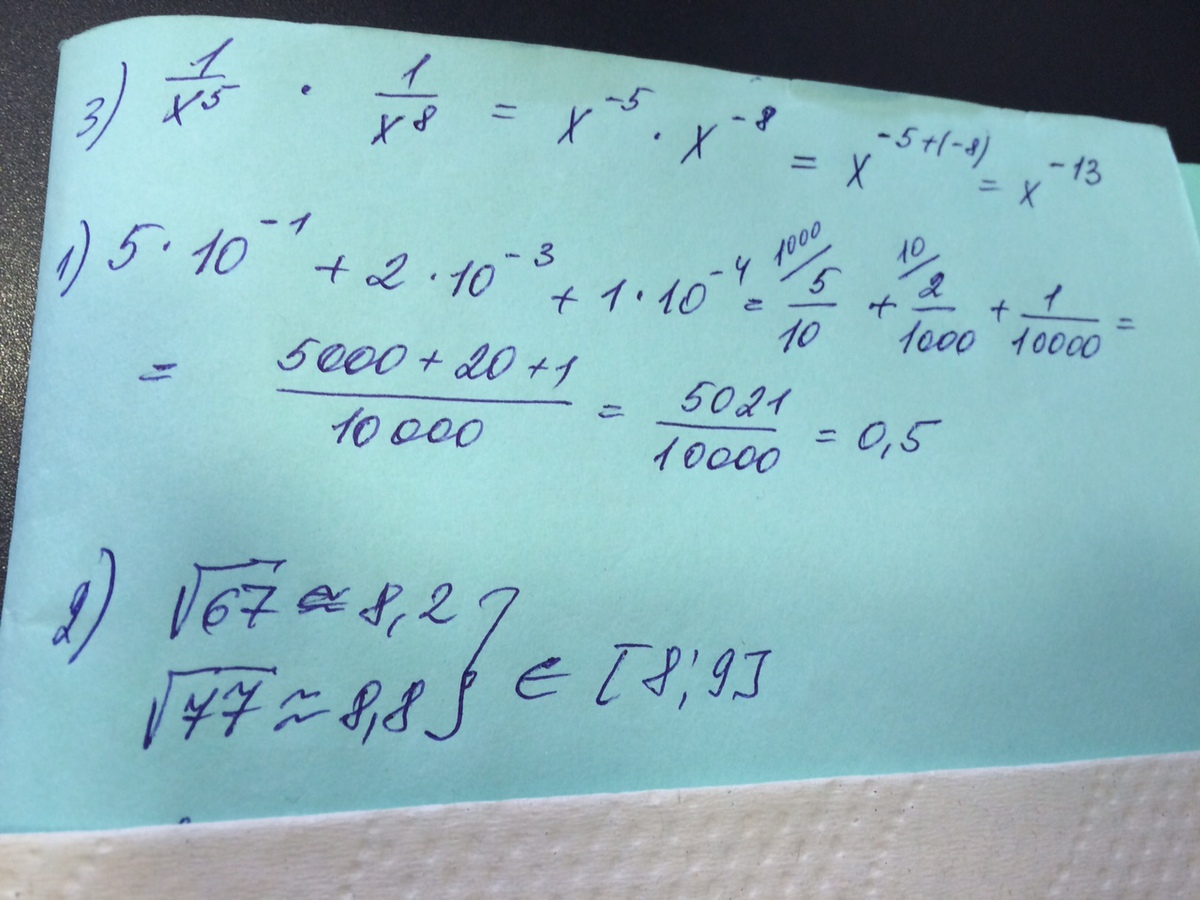 3) 1/x^5 · 1/x^8 = x^-5 · x^-8 = x^-5+(-8) = x^-13
1) 5·10^-1 + 2·10^-3 + 1·10^-4 = 1000/ 5/10 + 10/ 2/1000 + 1/10000 =
= 5000+20+1/10000 = 5021/10000 = 0,5
2) √67 ≈ 8,2
√77 ≈ 8,8 } ∈ [8;9]